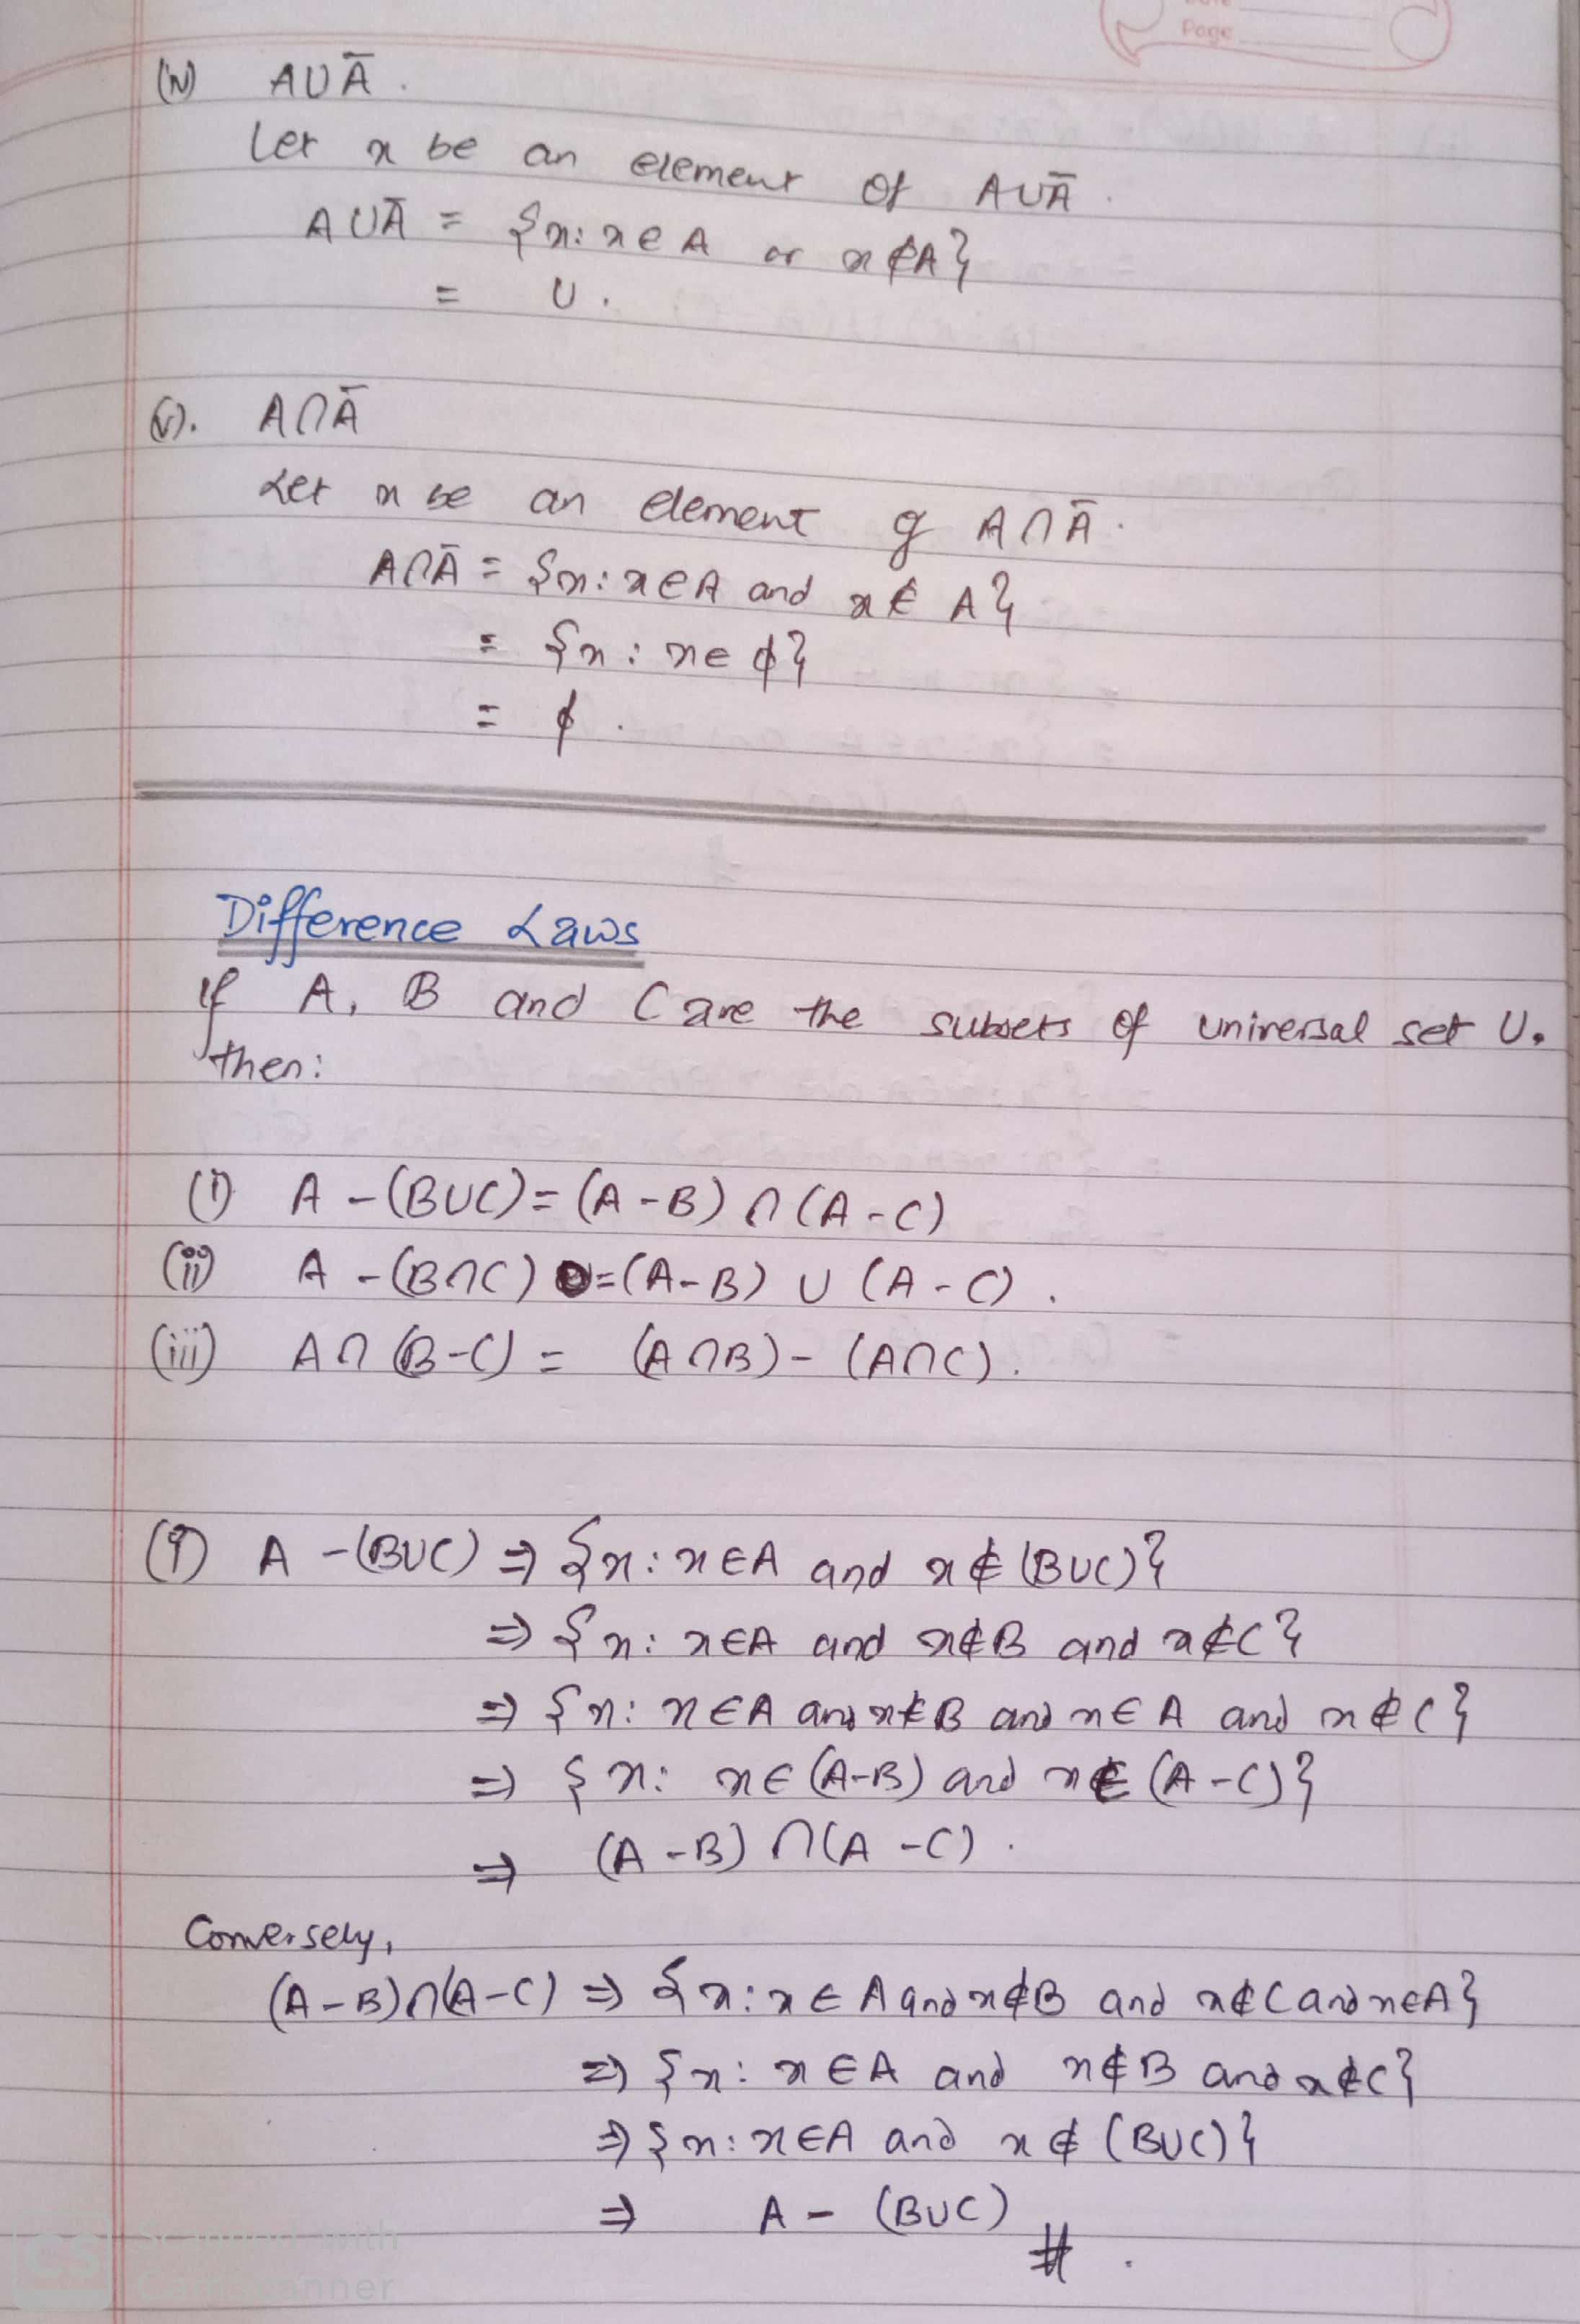 Page
(iv) A∪Ā.
Let x be an element of A∪Ā.
A∪Ā = {x: x∈A or x∉A}
= U.
(v). A∩Ā
Let x be an element of A∩Ā.
A∩Ā = {x: x∈A and x∉A}
= {x: x∈ϕ}
= ϕ.
Difference Laws
If A, B and C are the subsets of universal set U.
then:
(i) A-(B∪C)=(A-B)∩(A-C)
(ii) A-(B∩C)=(A-B)∪(A-C).
(iii) A∩(B-C) = (A∩B)-(A∩C).
(i) A-(B∪C) ⇒ {x: x∈A and x∉(B∪C)}
⇒ {x: x∈A and x∉B and x∉C}
⇒ {x: x∈A and x∉B and x∈A and x∉C}
⇒ {x: x∈(A-B) and x∈(A-C)}
⇒ (A-B)∩(A-C).
Conversely,
(A-B)∩(A-C) ⇒ {x: x∈A and x∉B and x∉C and x∈A}
⇒ {x: x∈A and x∉B and x∉C}
⇒ {x: x∈A and x∉(B∪C)}
⇒ A-(B∪C) #.
CS Scanned with
CamScanner